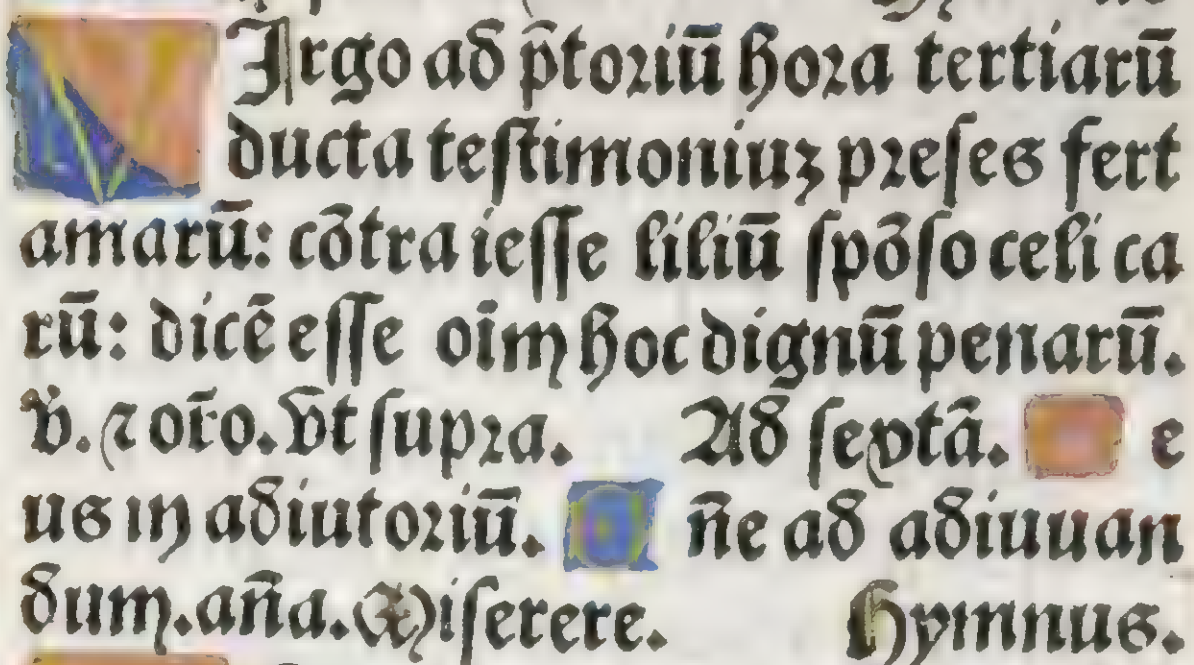 VIrgo ad p̄toriū hora tertiarū
ducta testimoniuꝫ preses fert
amarū: cōtra iesse liliū spōso celi ca
rū: dicē esse oīm hoc dignū penarū.
v̄. ⁊ oro. vt supra. Ad sextā. D e
us in adiutoriū. D n̄e ad adiuuan
dum. an̄a. Miserere. Hymnus.